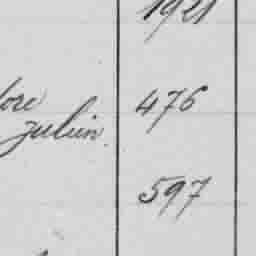 1921
lore 476
Julien.
597